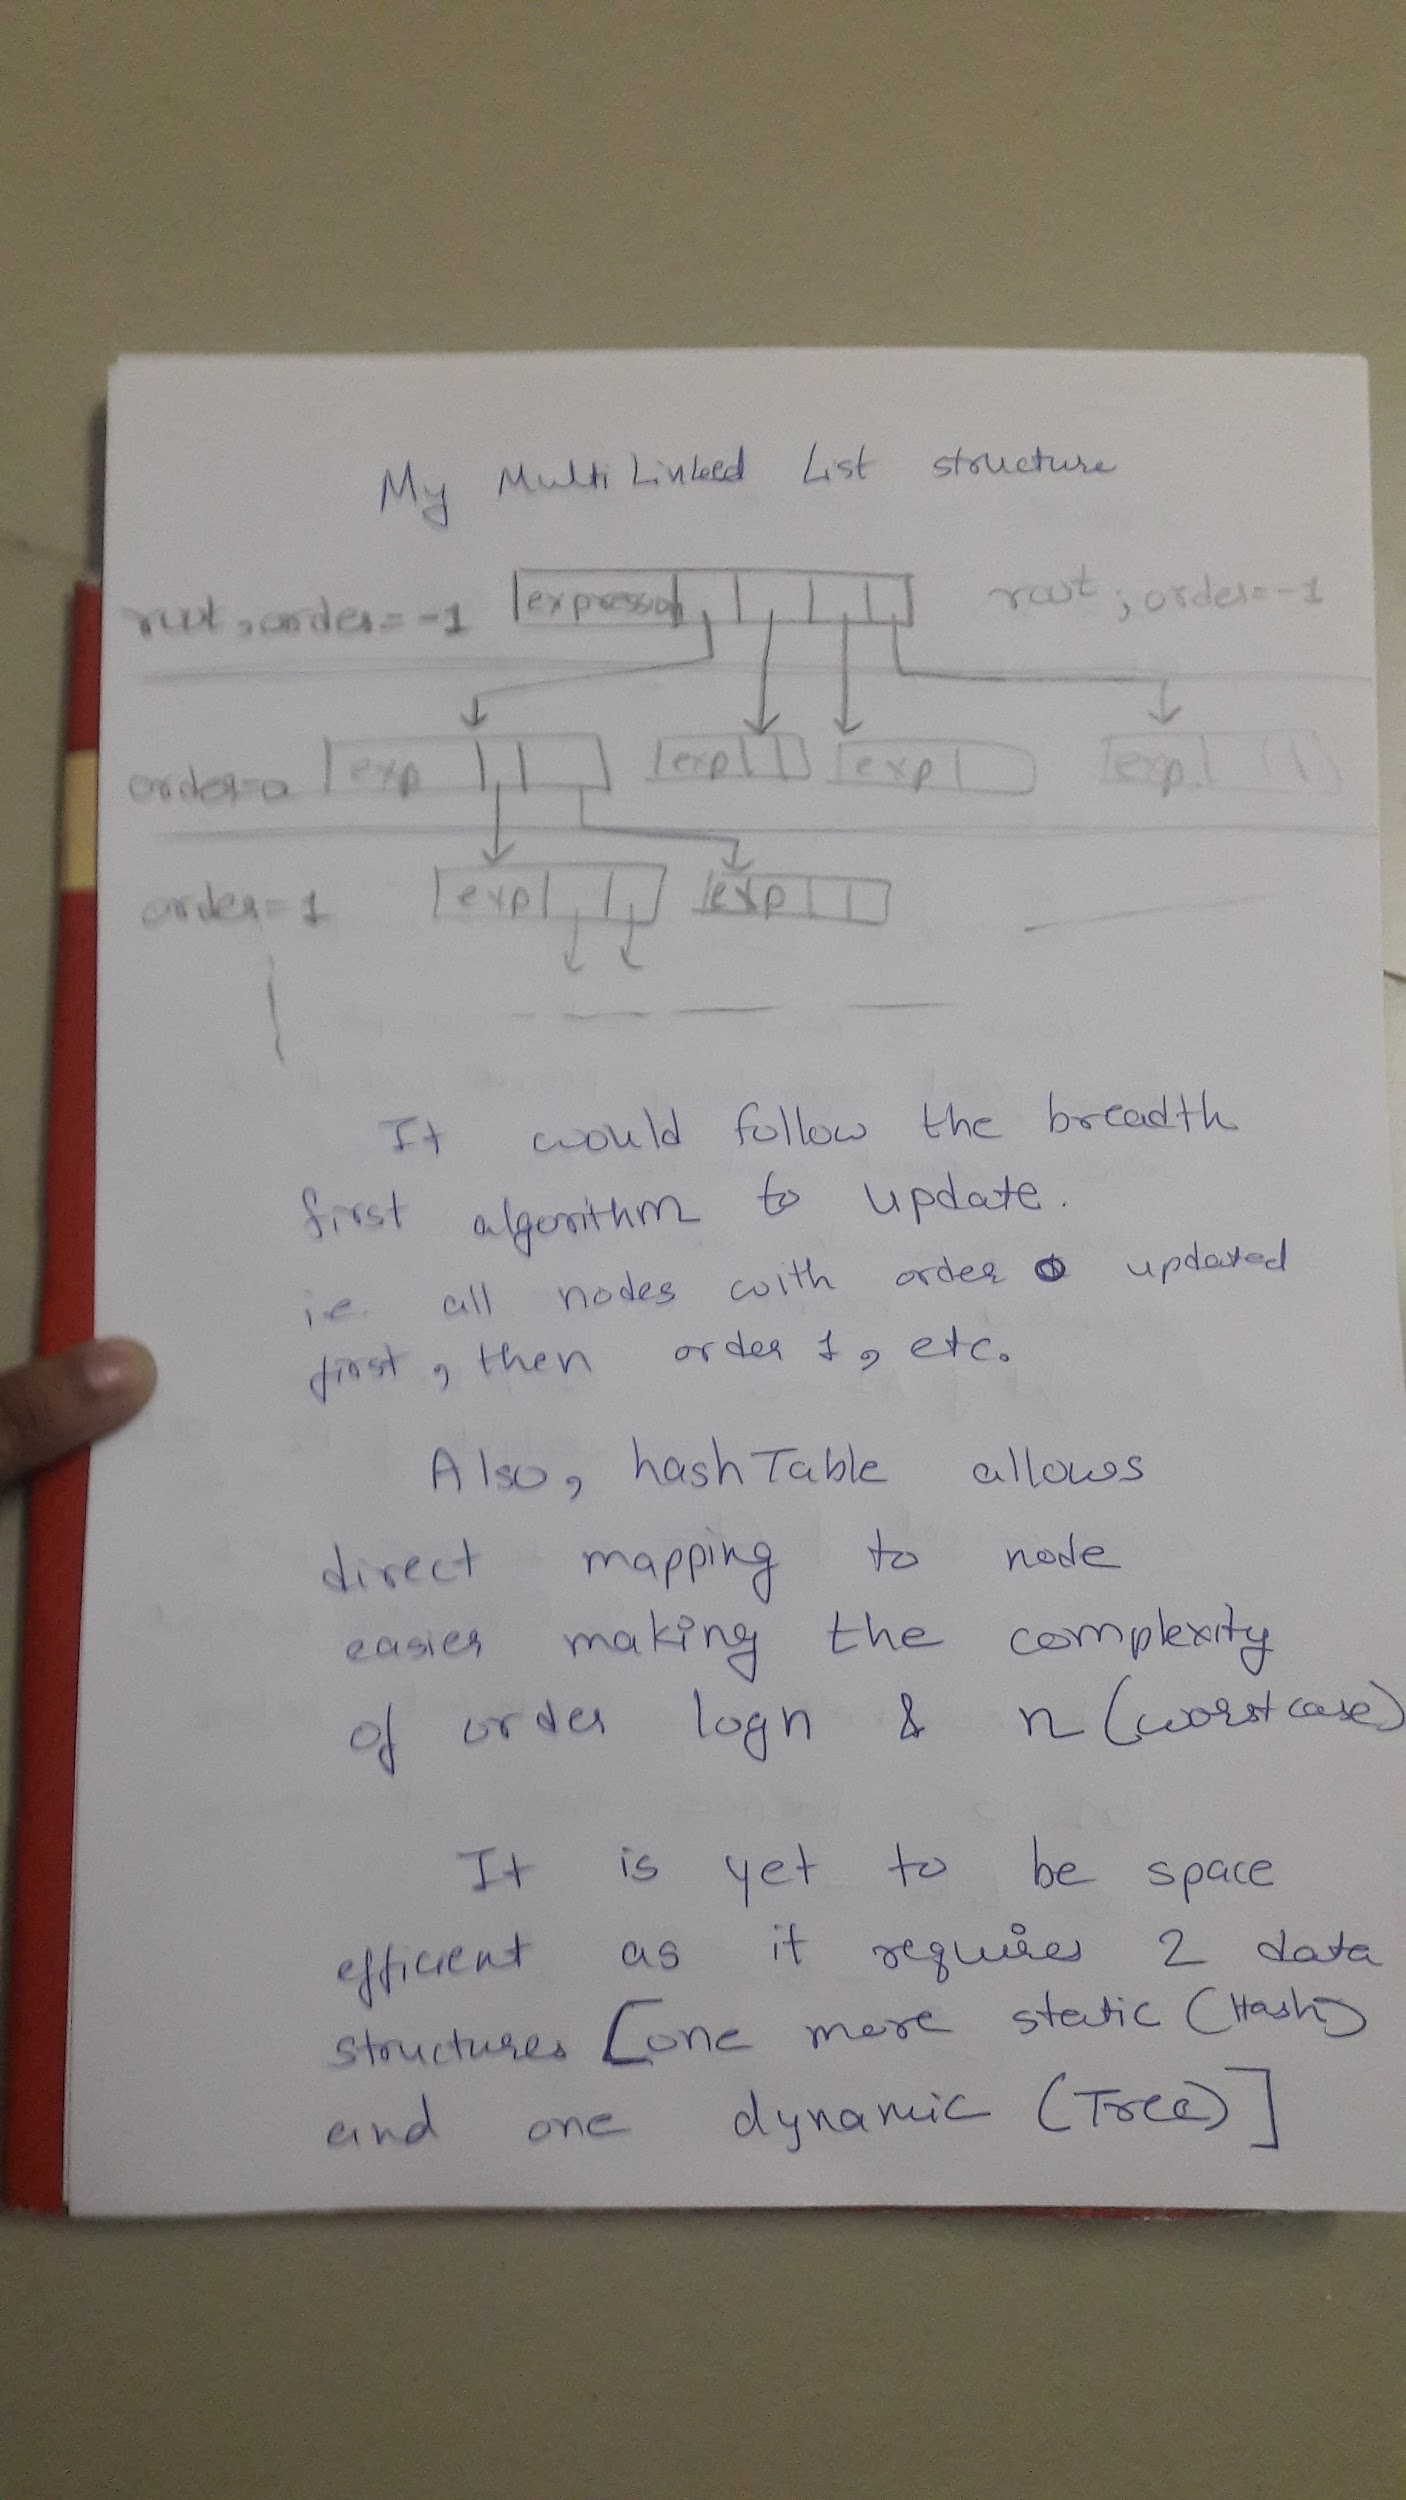 My Multi Linked List structure
root, order=-1 expression root, order=-1
order=0 exp exp exp exp
order=1 exp exp
It would follow the breadth
first algorithm to update.
i.e. all nodes with order 0 updated
first, then order 1, etc.
Also, hashTable allows
direct mapping to node
easier making the complexity
of order logn & n (worst case)
It is yet to be space
efficient as it requires 2 data
structures [one more static (Hash)
and one dynamic (Tree)]